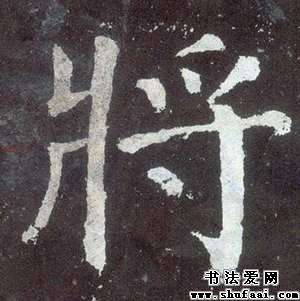 將
书法爱网
www.shufaai.com